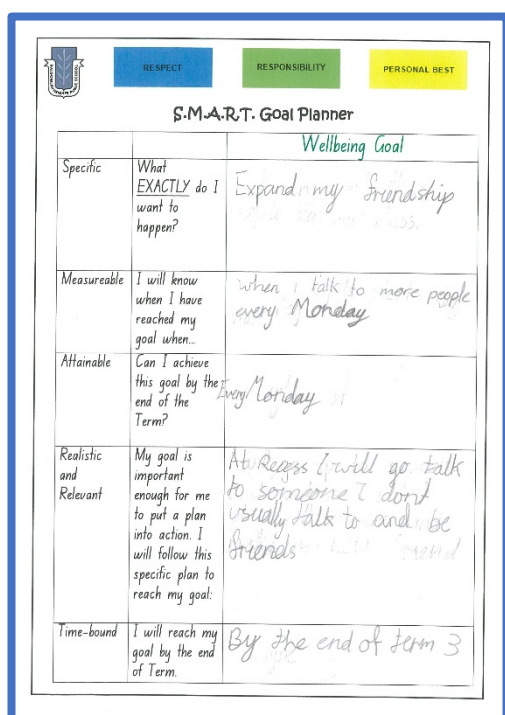 RESPECT
RESPONSIBILITY
PERSONAL BEST
S.M.A.R.T. Goal Planner
Wellbeing Goal
Specific
What
EXACTLY do I
want to
happen?
Expand my friendship
Measureable
I will know
when I have
reached my
goal when...
when i talk to more people
every Monday
Attainable
Can I achieve
this goal by the
end of the
Term?
Every Monday
Realistic
and
Relevant
My goal is
important
enough for me
to put a plan
into action. I
will follow this
specific plan to
reach my goal:
At Recess I will go talk
to someone I dont
usually talk to and be
friends
Time-bound
I will reach my
goal by the end
of Term.
By the end of term 3